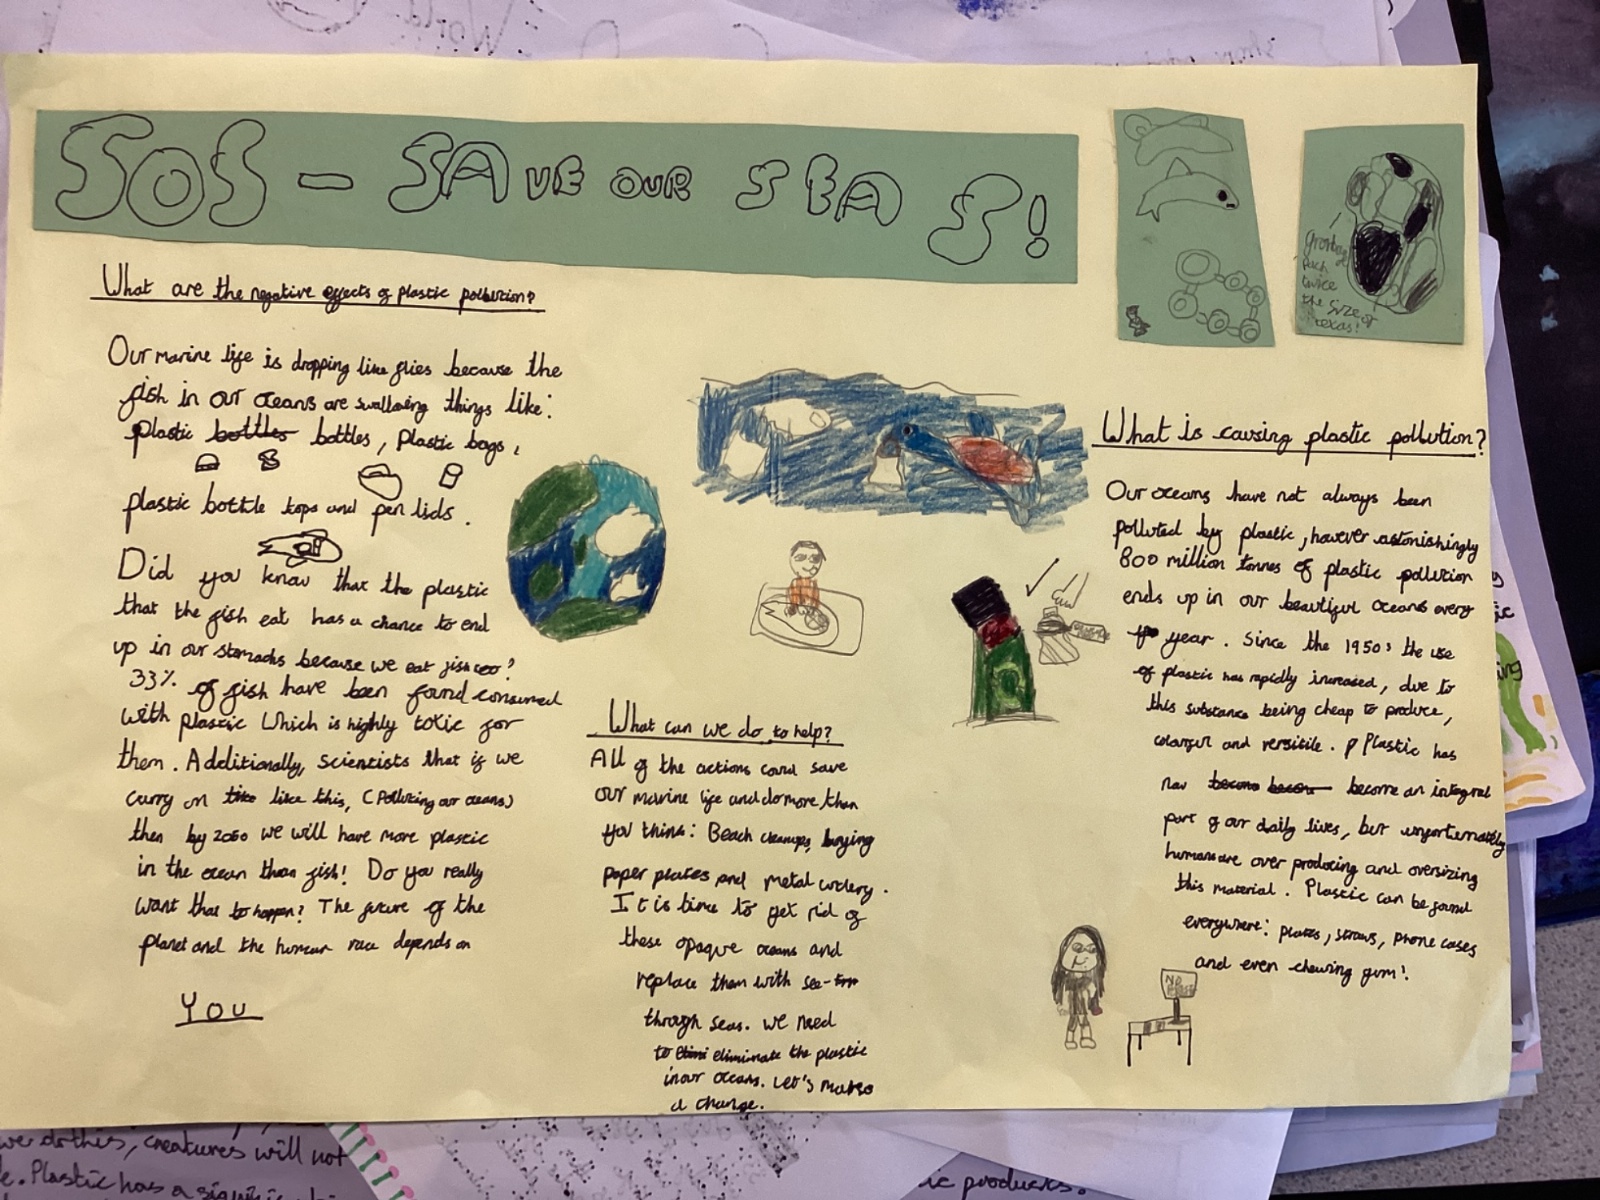 SOS - SAVE OUR SEAS!
What are the negative effects of plastic pollution?
Our marine life is dropping like flies because the
fish in our oceans are swallowing things like:
plastic bottles bottles, plastic bags,
plastic bottle tops and pen lids.
Did you know that the plastic
that the fish eat has a chance to end
up in our stomachs because we eat fish too?
33% of fish have been found consumed
with plastic which is highly toxic for
them. Additionally, scientists that if we
carry on like this, (polluting our oceans)
then by 2050 we will have more plastic
in the ocean than fish! Do you really
want that to happen? The future of the
planet and the human race depends on
You
What can we do to help?
All of the actions could save
our marine life and do more than
you think: Beach cleanups, buying
paper plates and metal cutlery.
It is time to get rid of
these opaque oceans and
replace them with see-
through seas. We need
to eliminate the plastic
in our oceans. Let's make
a change.
garbage
pach
twice
the size of
texas!
What is causing plastic pollution?
Our oceans have not always been
polluted by plastic, however astonishingly
800 million tonnes of plastic pollution
ends up in our beautiful oceans every
year. Since the 1950s the use
of plastic has rapidly increased, due to
this substance being cheap to produce,
colorful and versitile. Plastic has
now become an integral
part of our daily lives, but unfortunately
humans are over producing and oversizing
this material. Plastic can be found
everywhere: plates, straws, phone cases
and even chewing gum!
NO
wer do this, creatures will not
e. Plastic has a
ic products.